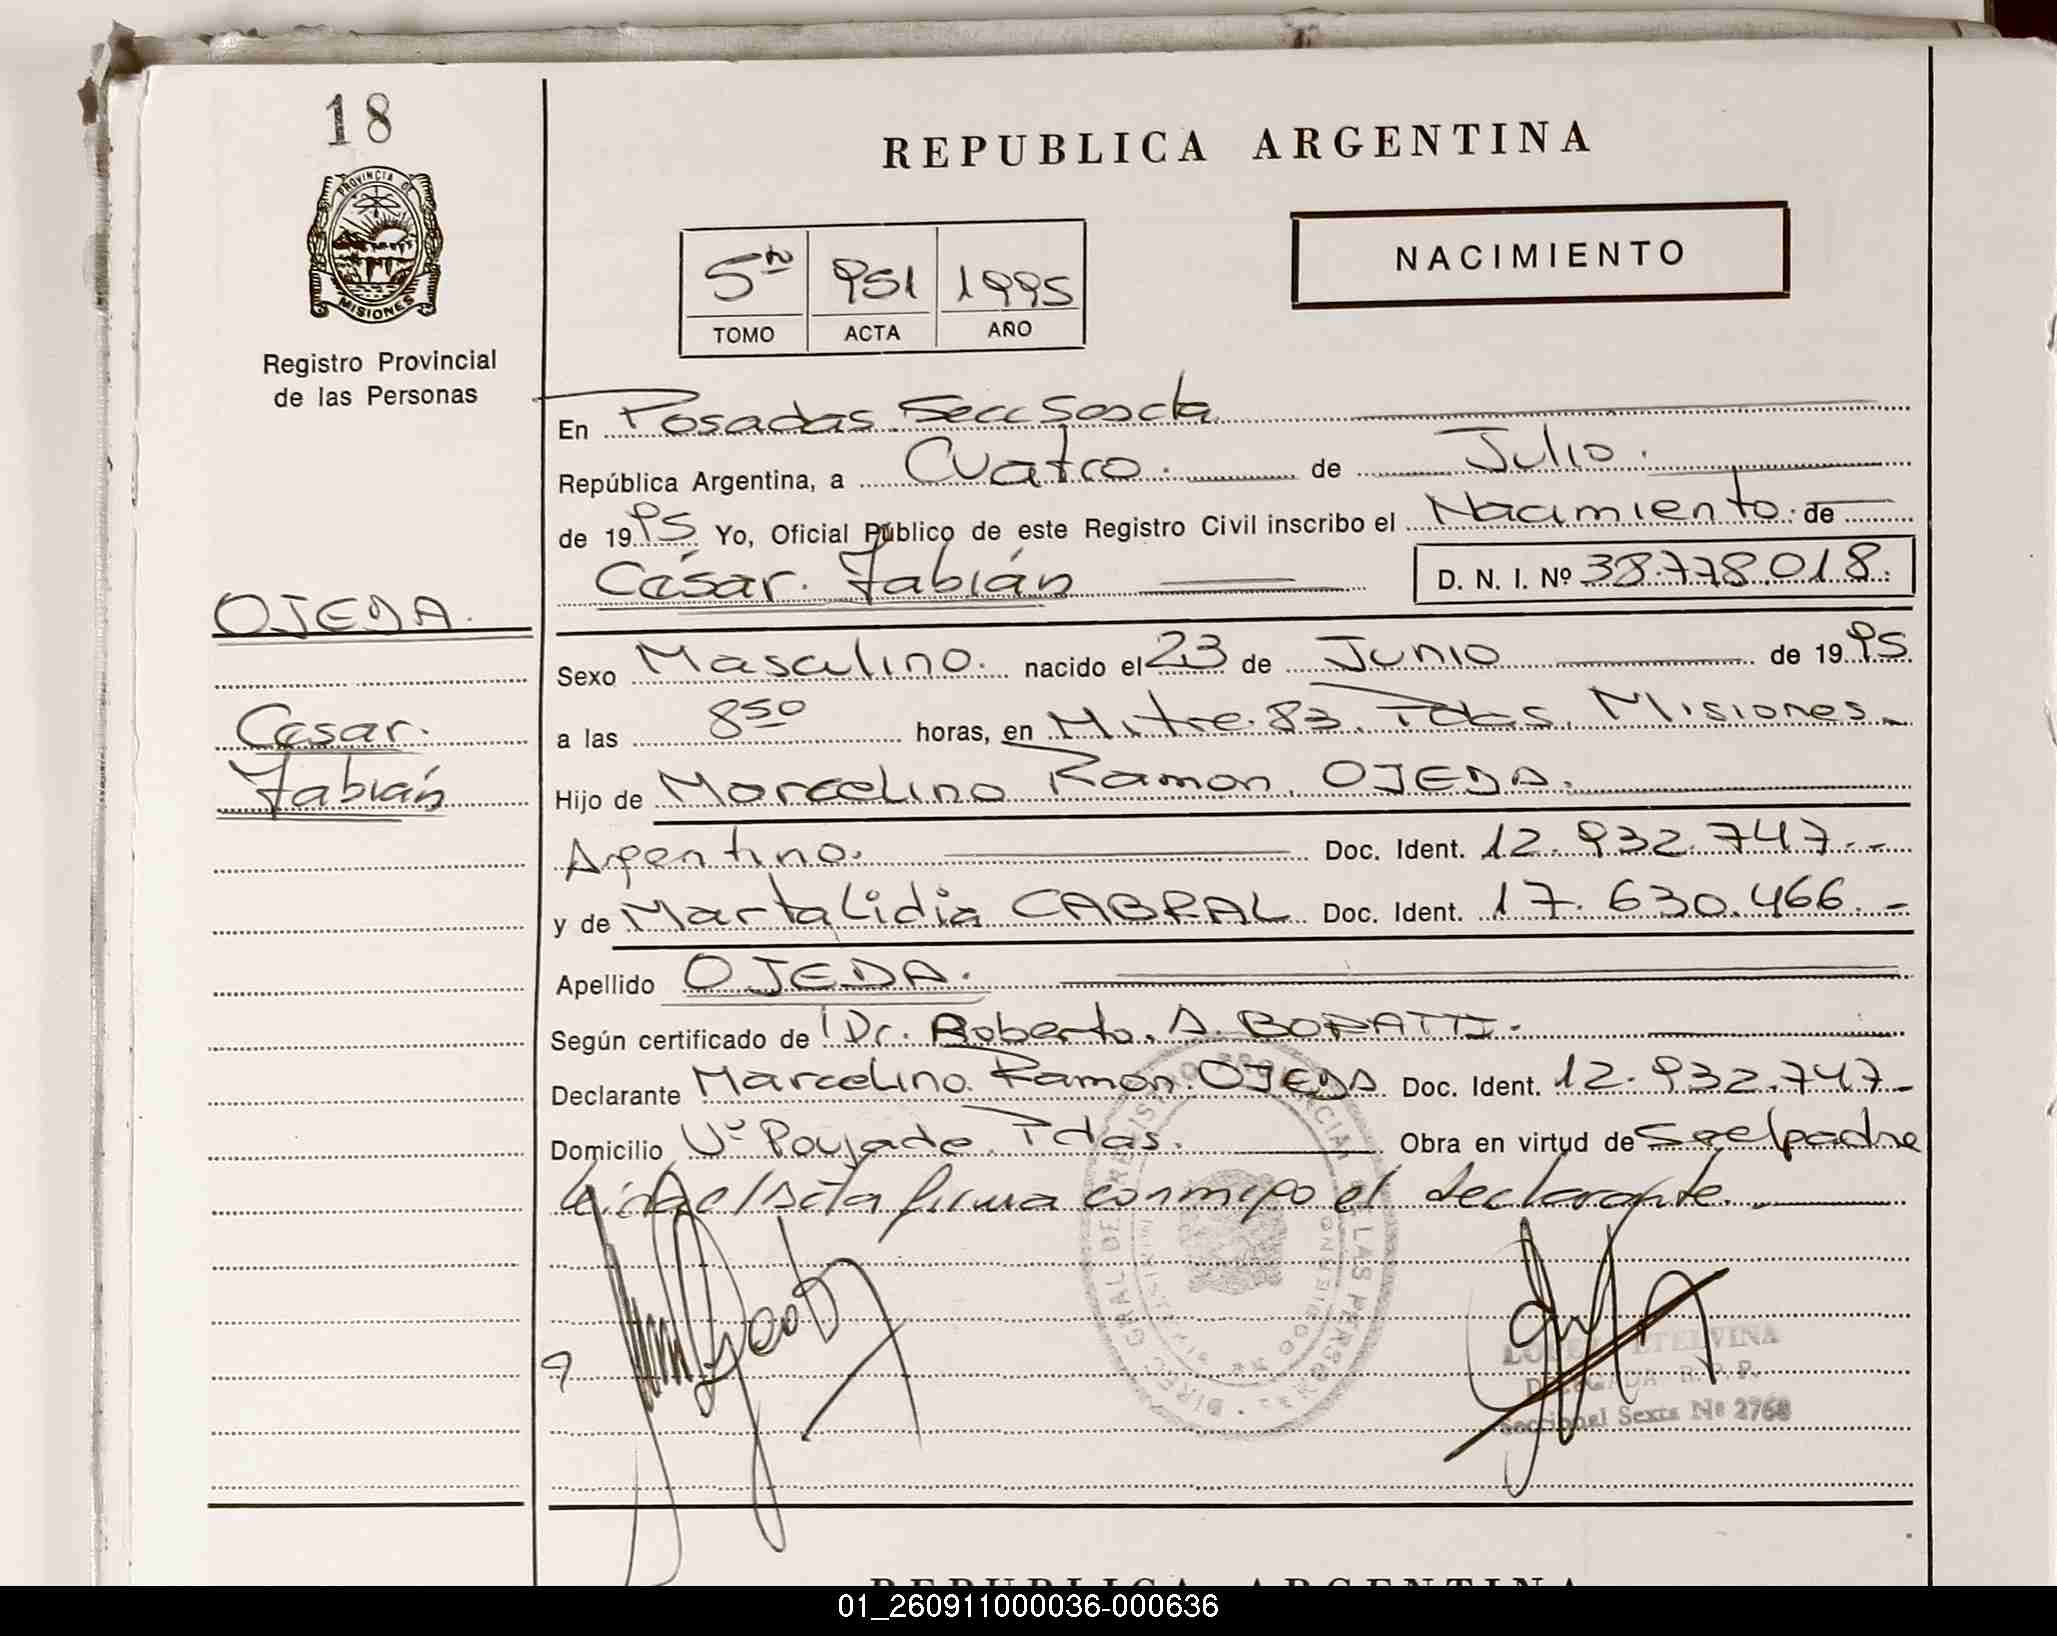 18
PROVINCIA DE
MISIONES
Registro Provincial
de las Personas
REPUBLICA ARGENTINA
NACIMIENTO
5to 951 1995
TOMO ACTA AÑO
En Posadas Secc Sexta
República Argentina, a Cuatro de Julio.
de 1995 Yo, Oficial Público de este Registro Civil inscribo el Nacimiento de
César Fabián D. N. I. Nº 38.778.018.
OJEDA.
César
Fabián
Sexo Masculino. nacido el 23 de Junio de 1995
a las 8 50 horas, en Mitre 83. Pdas. Misiones
Hijo de Marcelino Ramon OJEDA.
Argentino. Doc. Ident. 12.932.747.-
y de Marta Lidia CABRAL Doc. Ident. 17.630.466.-
Apellido OJEDA.
Según certificado de Dr. Roberto A. BORATTI.
Declarante Marcelino Ramon OJEDA Doc. Ident. 12.932.747-
Domicilio Vº Poujade Pdas. Obra en virtud de Ser el padre
Leída el Acta firma conmigo el declarante.
DIREC. GRAL DE REGISTRO PROVINCIAL DE LAS PERSONAS
ETELVINA
DELEGADA R. P. P.
Seccional Sexta Nº 2768
REPUBLICA ARGENTINA
01_260911000036-000636